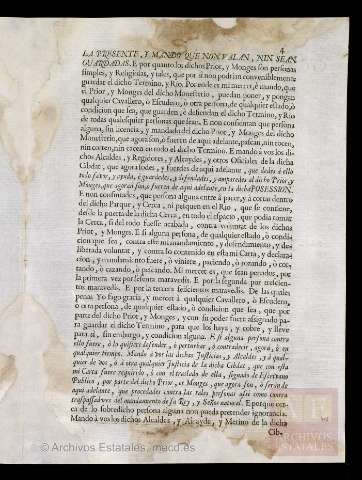 4
LA PRESENTE, Y MANDO QUE NON VALAN, NIN SEAN
GUARDADAS. E por quanto los dichos Prior, y Monges son personas
simples, y Religiosas, y tales, que por si non podrian convenientemente
guardar el dicho Termino, y Rio. Por ende es mi merced, è mando, que
el Prior, y Monges del dicho Monesterio, puedan poner, y pongan
qualquier Cavallero, ò Escudero, ò otra persona, de qualquier estado, ò
condicion que sea, que guarden, è defiendan el dicho Termino, y Rio
de todas qualesquier personas que sean. E non consientan que persona
alguna, sin licencia, y mandado del dicho Prior, y Monges del dicho
Monesterio, que agora son, ò fueren de aqui adelante, pascan, nin rocen,
nin corten, nin cacen en todo el dicho Termino. E mando à vos los di-
chos Alcaldes, y Regidores, y Alcaydes, y otros Oficiales de la dicha
Cibdat, que agora sodes, y fueredes de aqui adelante, que dedes à ello
todo favor, y ayuda, è guardedes, y defendades, y amparedes al dicho Prior, y
Monges, que agora son, ò fueren de aqui adelante, en la dicha POSESSION.
E non consintades, que persona alguna entre à pacer, y à cortar dentro
del dicho Parque, y Cerca, ni pesquen en el Rio, que se contiene,
desde la puerta de la dicha Cerca, en todo el espacio, que podia tomar
la Cerca, si del todo fuesse acabada, contra voluntat de los dichos
Prior, y Monges. E si alguna persona, de qualquier estado, ò condi-
cion que sea, contra este mi mandamiento, y defendimiento, y de-
liberada voluntat, y contra lo contenido en esta mi Carta, y declara-
cion, y mandamiento fuere, ò viniere, paciendo, ò rozando, ò cor-
tando, ò cazando, ò pescando. Mi merced es, que sean penados, por
la primera vez por sesenta maravedis. E por la segunda por seiscien-
tos maravedis. E por la tercera seiscientos maravedis. De las quales
penas Yo fago gracia, y merced à qualquier Cavallero, ò Escudero,
ò otra persona, de qualquier estado, ò condicion que sea, que por
parte del dicho Prior, y Monges, y con su poder fuere assignado pa-
ra guardar el dicho Termino, para que los haya, y cobre, y lleve
para si, sin embargo, y condicion alguna. E si alguna persona contra
ello fuere, ò lo quisiere defender, ò perturbar, ò contradecir, agora, ò en
qualquier tiempo. Mando à vos las dichas Justicias, y Alcaldes, y à qual-
quier de vos, ò à otra qualquier Justicia de la dicha Cibdat, que con esta
mi Carta fuere requerido, ò con el traslado de ella, signado de Escribano
Publico, por parte del dicho Prior, et Monges, que agora son, ò serán de
aqui adelante, que procedades contra las tales personas assi como contra
traspassadores del mandamiento de su Rey, y Señor natural. E porque cer-
ca de lo sobredicho persona alguna non pueda pretender ignorancia.
Mando à vos los dichos Alcaldes, y Alcayde, y Merino de la dicha
Cib-
© Archivos Estatales, mecd.es